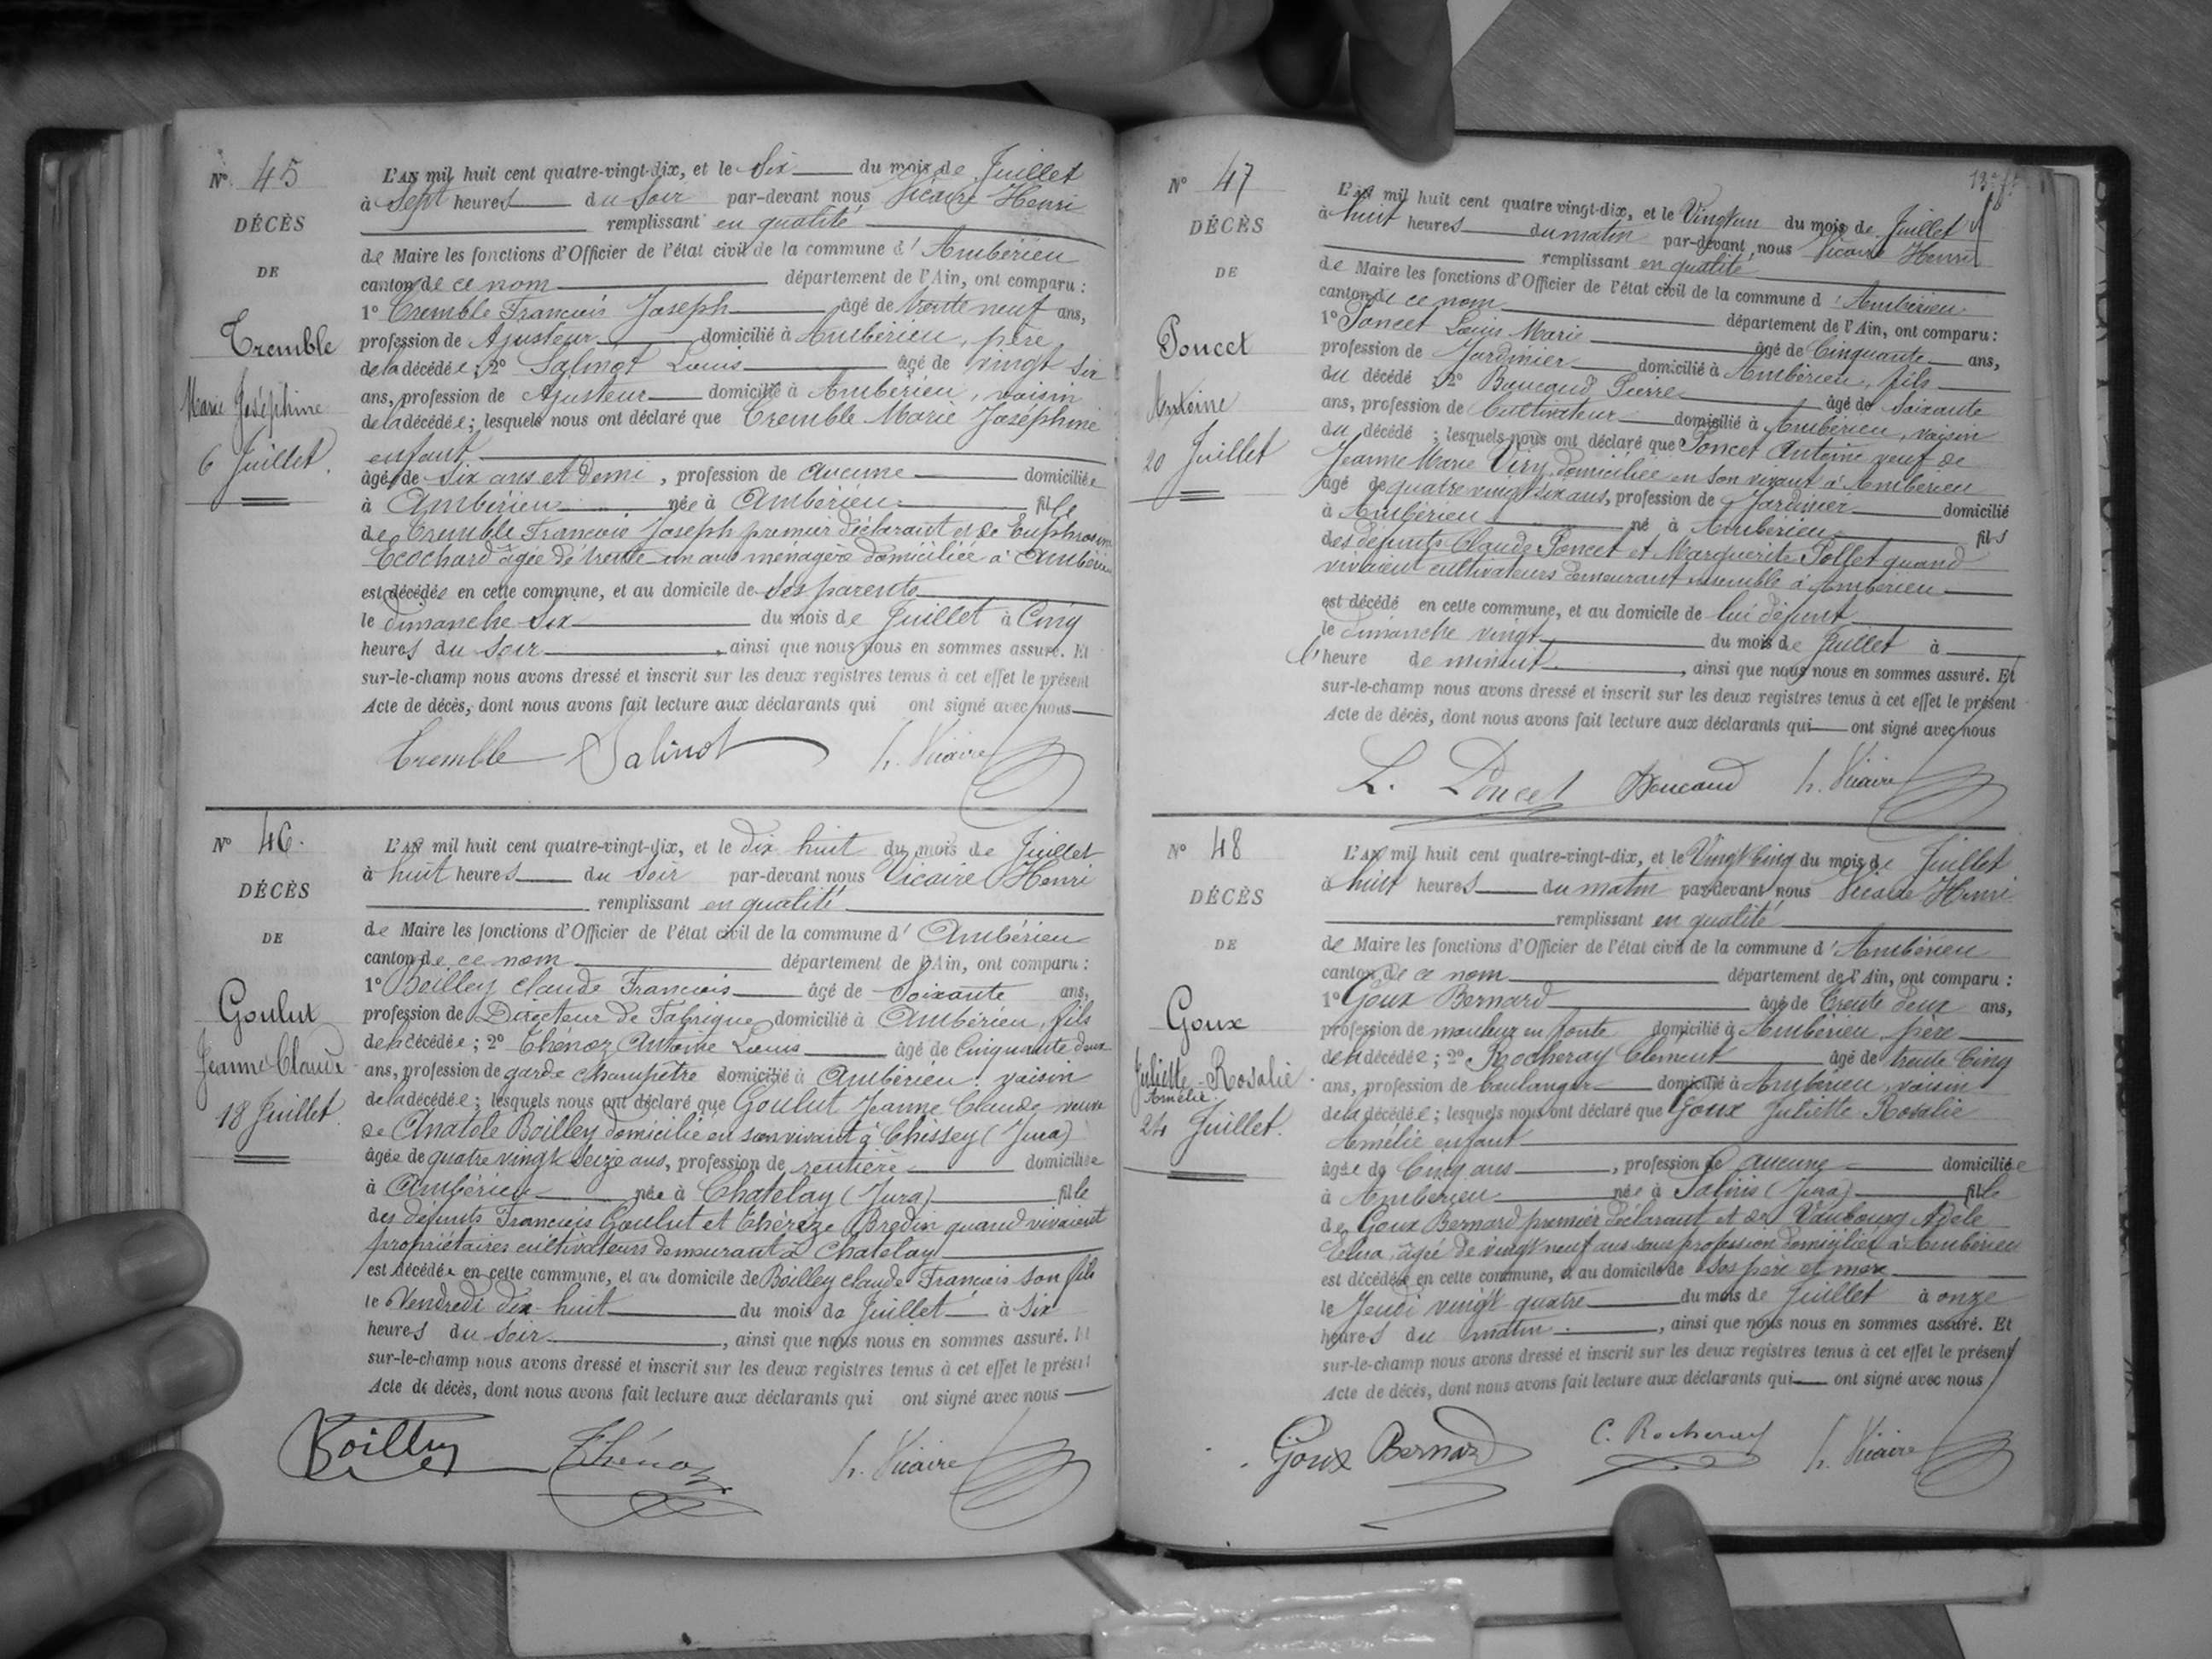 N° 45
DÉCÈS
DE
Tremble
Marie Joséphine
6 Juillet.
L'AN mil huit cent quatre-vingt-dix, et le Six du mois de Juillet
à Sept heures du Soir par-devant nous Vicaire Henri
remplissant en qualité
de Maire les fonctions d'Officier de l'état civil de la commune d'Ambérieu
canton de ce nom département de l'Ain, ont comparu :
1° Tremble Francois Joseph âgé de trente neuf ans,
profession de Ajusteur domicilié à Ambérieu, père
de la décédée ; 2° Salinot Louis âgé de vingt six
ans, profession de Ajusteur domicilié à Ambérieu, voisin
de la décédée ; lesquels nous ont déclaré que Tremble Marie Joséphine
enfant
âgée de Six ans et demi, profession de aucune domiciliée
à Ambérieu née à Ambérieu fille
de Tremble Francois Joseph premier déclarant et de Euphrosine
Ecochard âgée de trente un ans ménagère domiciliée à Ambérieu
est décédée en cette commune, et au domicile de ses parents
le dimanche Six du mois de Juillet à Cinq
heures du Soir, ainsi que nous nous en sommes assuré. Et
sur-le-champ nous avons dressé et inscrit sur les deux registres tenus à cet effet le présent
Acte de décès, dont nous avons fait lecture aux déclarants qui ont signé avec nous
Tremble Salinot h. Vicaire
N° 46.
DÉCÈS
DE
Goulut
Jeanne Claude
18 Juillet.
L'AN mil huit cent quatre-vingt-dix, et le dix huit du mois de Juillet
à huit heures du Soir par-devant nous Vicaire Henri
remplissant en qualité
de Maire les fonctions d'Officier de l'état civil de la commune d'Ambérieu
canton de ce nom département de l'Ain, ont comparu :
1° Boilley Claude Francois âgé de Soixante ans,
profession de Directeur de Fabrique domicilié à Ambérieu, fils
de la décédée ; 2° Thénoz Antoine Louis âgé de Cinquante deux
ans, profession de garde champêtre domicilié à Ambérieu, voisin
de la décédée ; lesquels nous ont déclaré que Goulut Jeanne Claude veuve
de Anatole Boilley domicilié en son vivant à Chissey (Jura)
âgée de quatre vingt seize ans, profession de rentière domiciliée
à Ambérieu née à Chatelay (Jura) fille
des défunts Francois Goulut et Thérèze Bredin quand vivaient
propriétaires cultivateurs demeurant à Chatelay
est décédée en cette commune, et au domicile de Boilley Claude Francois son fils
le Vendredi dix-huit du mois de Juillet à Six
heures du Soir, ainsi que nous nous en sommes assuré. Et
sur-le-champ nous avons dressé et inscrit sur les deux registres tenus à cet effet le présent
Acte de décès, dont nous avons fait lecture aux déclarants qui ont signé avec nous
Boilley Thénoz h. Vicaire
N° 47
DÉCÈS
DE
Poncet
Antoine
20 Juillet
L'AN mil huit cent quatre vingt-dix, et le Vingt un du mois de Juillet
à huit heures du matin par-devant nous Vicaire Henri
remplissant en qualité
de Maire les fonctions d'Officier de l'état civil de la commune d'Ambérieu
canton de ce nom département de l'Ain, ont comparu :
1° Poncet Louis Marie âgé de Cinquante ans,
profession de Jardinier domicilié à Ambérieu, fils
du décédé 2° Boucaud Pierre âgé de Soixante
ans, profession de Cultivateur domicilié à Ambérieu, voisin
du décédé ; lesquels nous ont déclaré que Poncet Antoine veuf de
Jeanne Marie Viry domiciliée en son vivant à Ambérieu
âgé de quatre vingt six ans, profession de Jardinier domicilié
à Ambérieu né à Ambérieu fils
des défunts Claude Poncet et Marguerite Pollet quand
vivaient cultivateurs demeurant ensemble à Ambérieu
est décédé en cette commune, et au domicile de lui défunt
le dimanche vingt du mois de Juillet à
l'heure de minuit, ainsi que nous nous en sommes assuré. Et
sur-le-champ nous avons dressé et inscrit sur les deux registres tenus à cet effet le présent
Acte de décès, dont nous avons fait lecture aux déclarants qui ont signé avec nous
L. Poncet Boucaud h. Vicaire
N° 48
DÉCÈS
DE
Goux
Juliette-Rosalie
Amélie.
24 Juillet.
L'AN mil huit cent quatre-vingt-dix, et le Vingt Cinq du mois de Juillet
à huit heures du matin par-devant nous Vicaire Henri
remplissant en qualité
de Maire les fonctions d'Officier de l'état civil de la commune d'Ambérieu
canton de ce nom département de l'Ain, ont comparu :
1° Goux Bernard âgé de Trente deux ans,
profession de mouleur en fonte domicilié à Ambérieu, père
de la décédée ; 2° Rocheray Clément âgé de trente Cinq
ans, profession de boulanger domicilié à Ambérieu, voisin
de la décédée ; lesquels nous ont déclaré que Goux Juliette Rosalie
Amélie enfant
âgée de Cinq ans, profession de aucune domiciliée
à Ambérieu née à Salins (Jura) fille
de Goux Bernard premier déclarant et de Vaubourg Adèle
Elina, âgée de vingt neuf ans sans profession domiciliée à Ambérieu
est décédée en cette commune, et au domicile de ses père et mère
le Jeudi vingt quatre du mois de Juillet à onze
heures du matin, ainsi que nous nous en sommes assuré. Et
sur-le-champ nous avons dressé et inscrit sur les deux registres tenus à cet effet le présent
Acte de décès, dont nous avons fait lecture aux déclarants qui ont signé avec nous
Goux Bernard C. Rocheray h. Vicaire